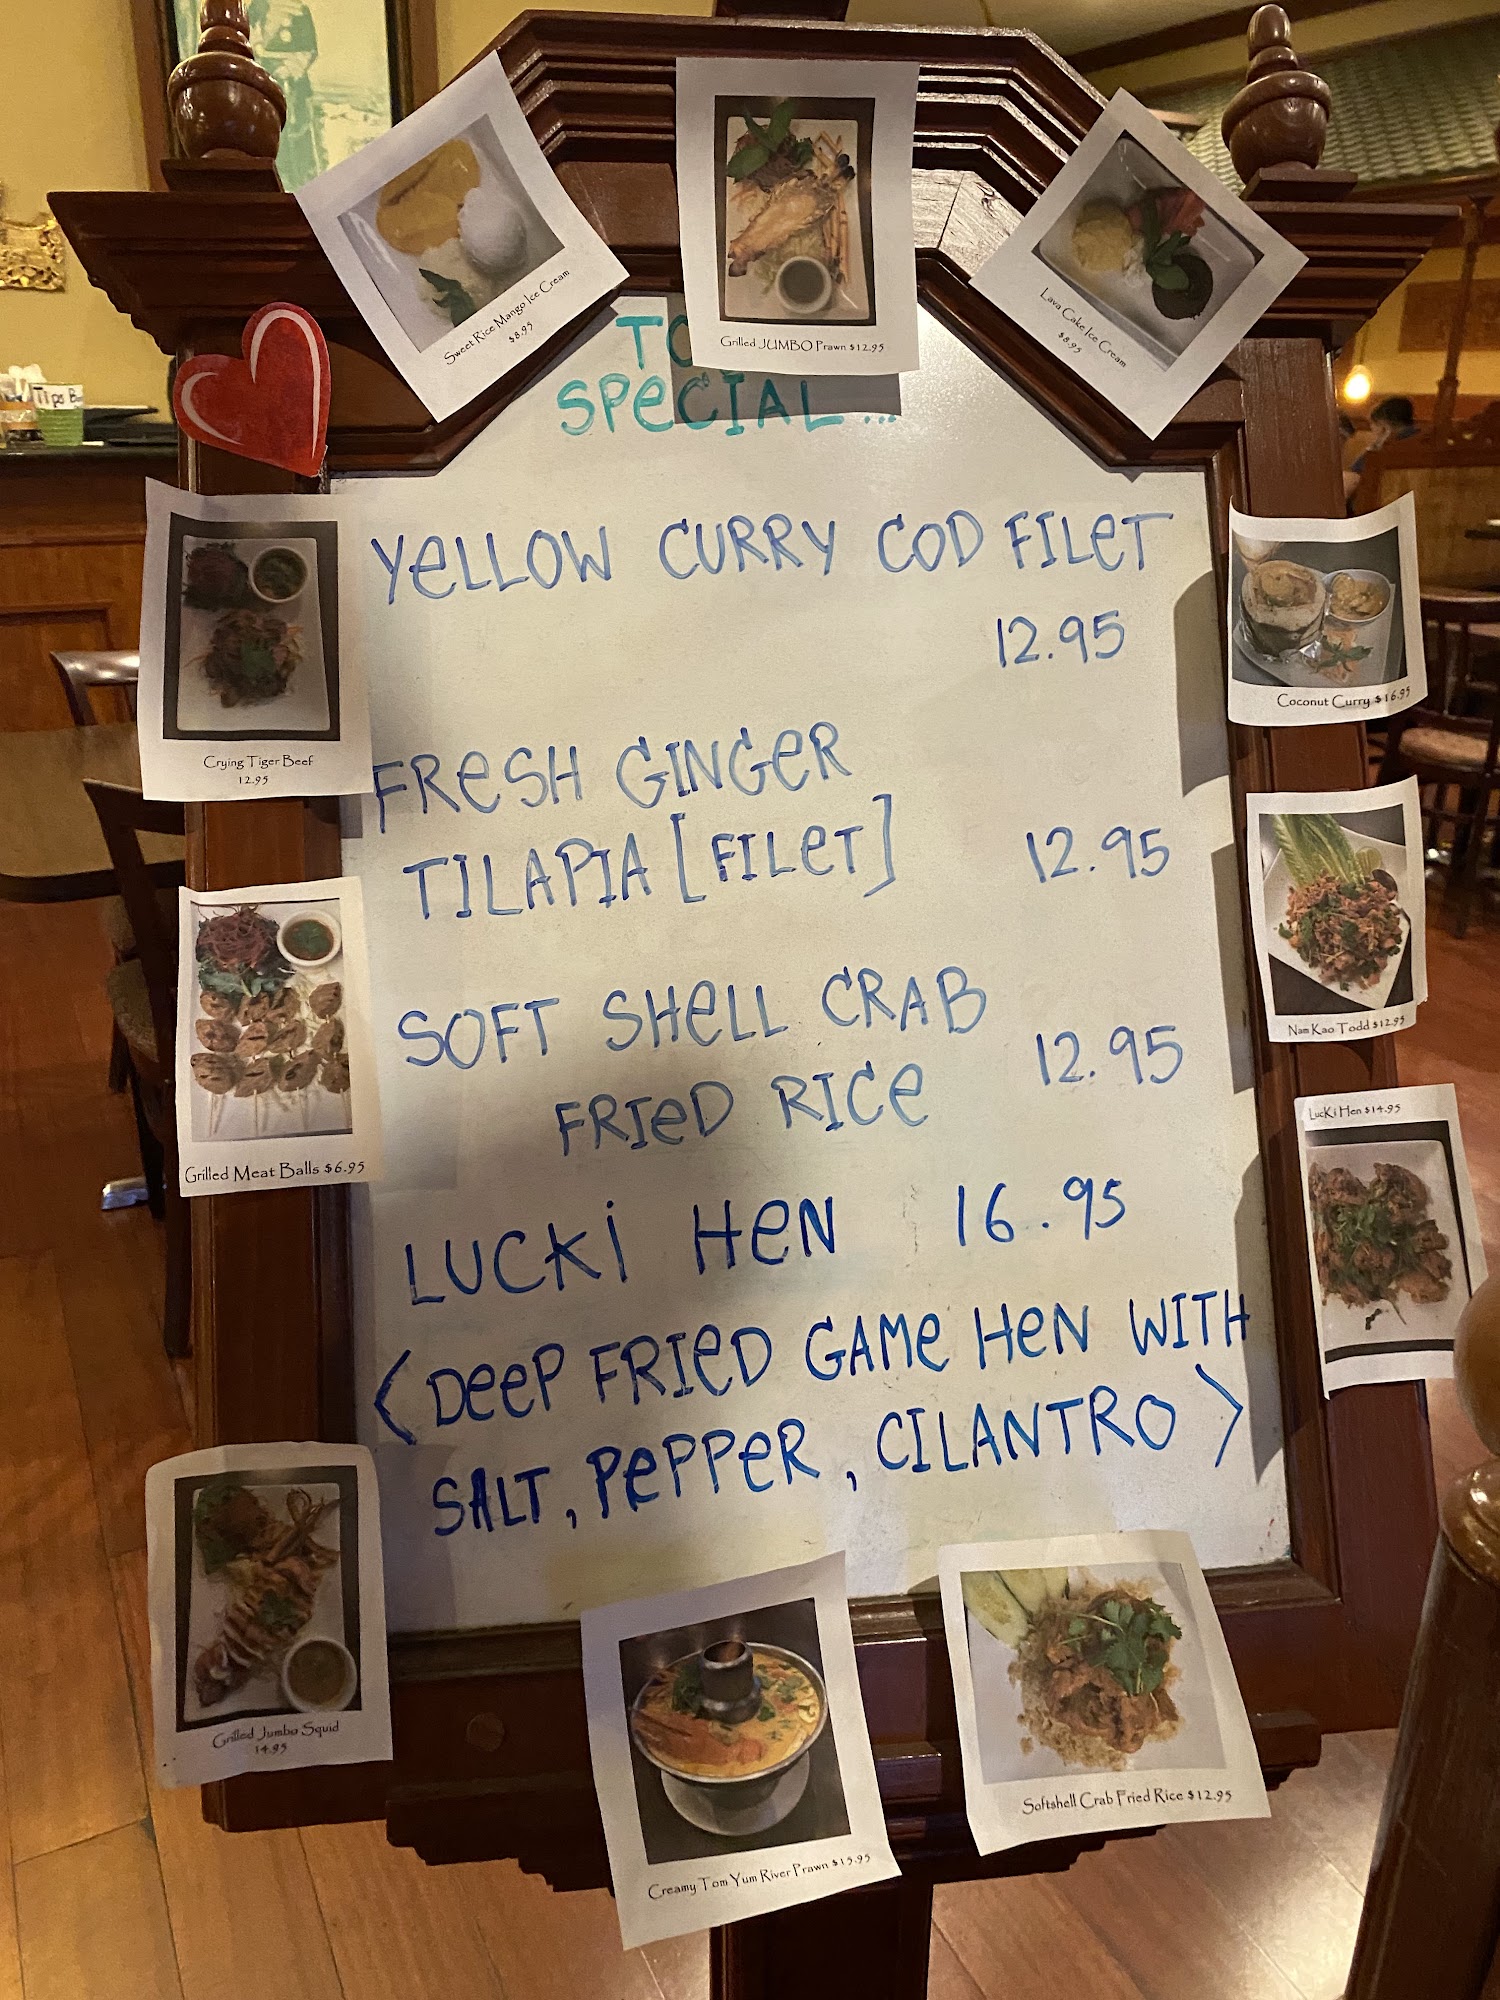 Sweet Rice Mango Ice Cream
$8.95
Grilled JUMBO Prawn $12.95
Lava Cake Ice Cream
$8.95
SPECIAL...
YELLOW CURRY COD FILET
12.95
FRESH GINGER
TILAPIA [FILET] 12.95
SOFT SHELL CRAB
FRIED RICE 12.95
LUCKi HEN 16.95
<DEEP FRIED GAME HEN WITH
SALT, PEPPER, CILANTRO>
Crying Tiger Beef
12.95
Grilled Meat Balls $6.95
Grilled Jumbo Squid
14.95
Creamy Tom Yum River Prawn $15.95
Softshell Crab Fried Rice $12.95
Coconut Curry $16.95
Nam Kao Todd $12.95
LucKi Hen $14.95
Tips